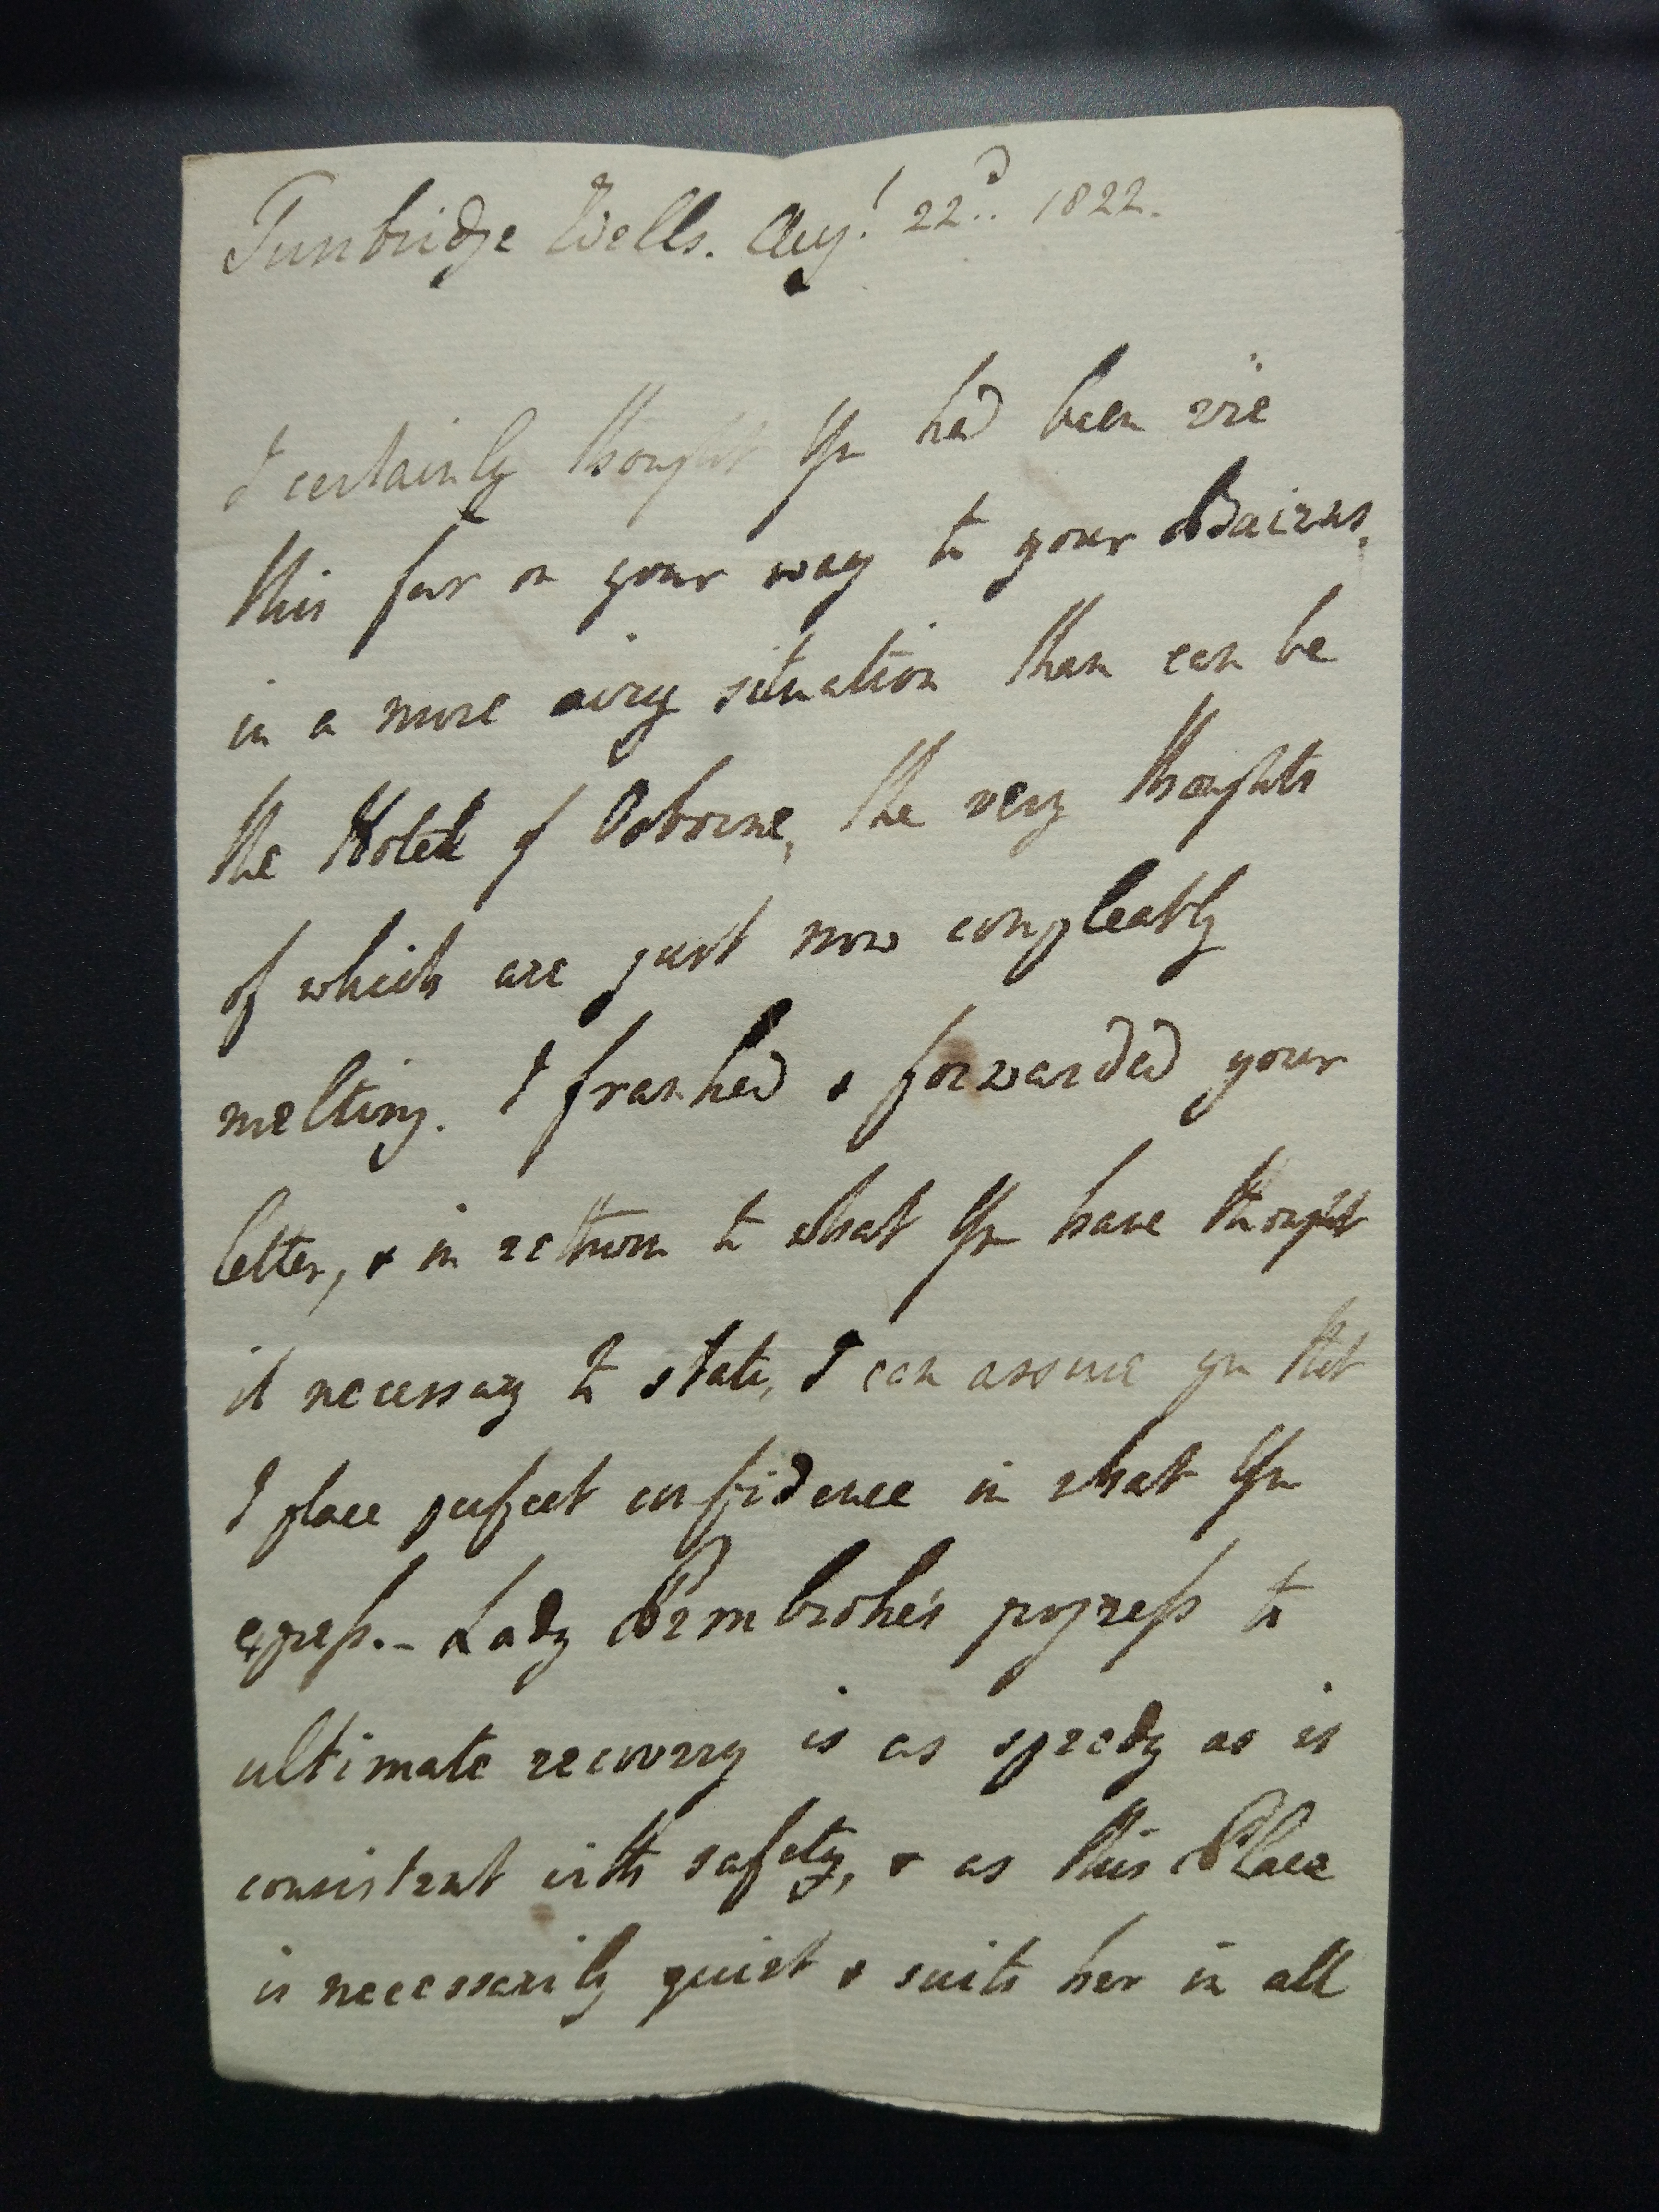 Tunbridge Wells. Augt. 22d. 1822.
I certainly thought You had been
this far on your way to your Bairns,
in a more airy situation than can be
the Hotel of Osborne, the very thoughts
of which are just now compleatly
melting. I franked & forwarded your
letter, & in return to what You have thought
it necessary to state, I can assure you that
I place perfect confidence in what You
express. - Lady Pembroke's progress to
ultimate recovery is as speedy as is
consistent with safety, & as this Place
is necessarily quiet & suits her in all